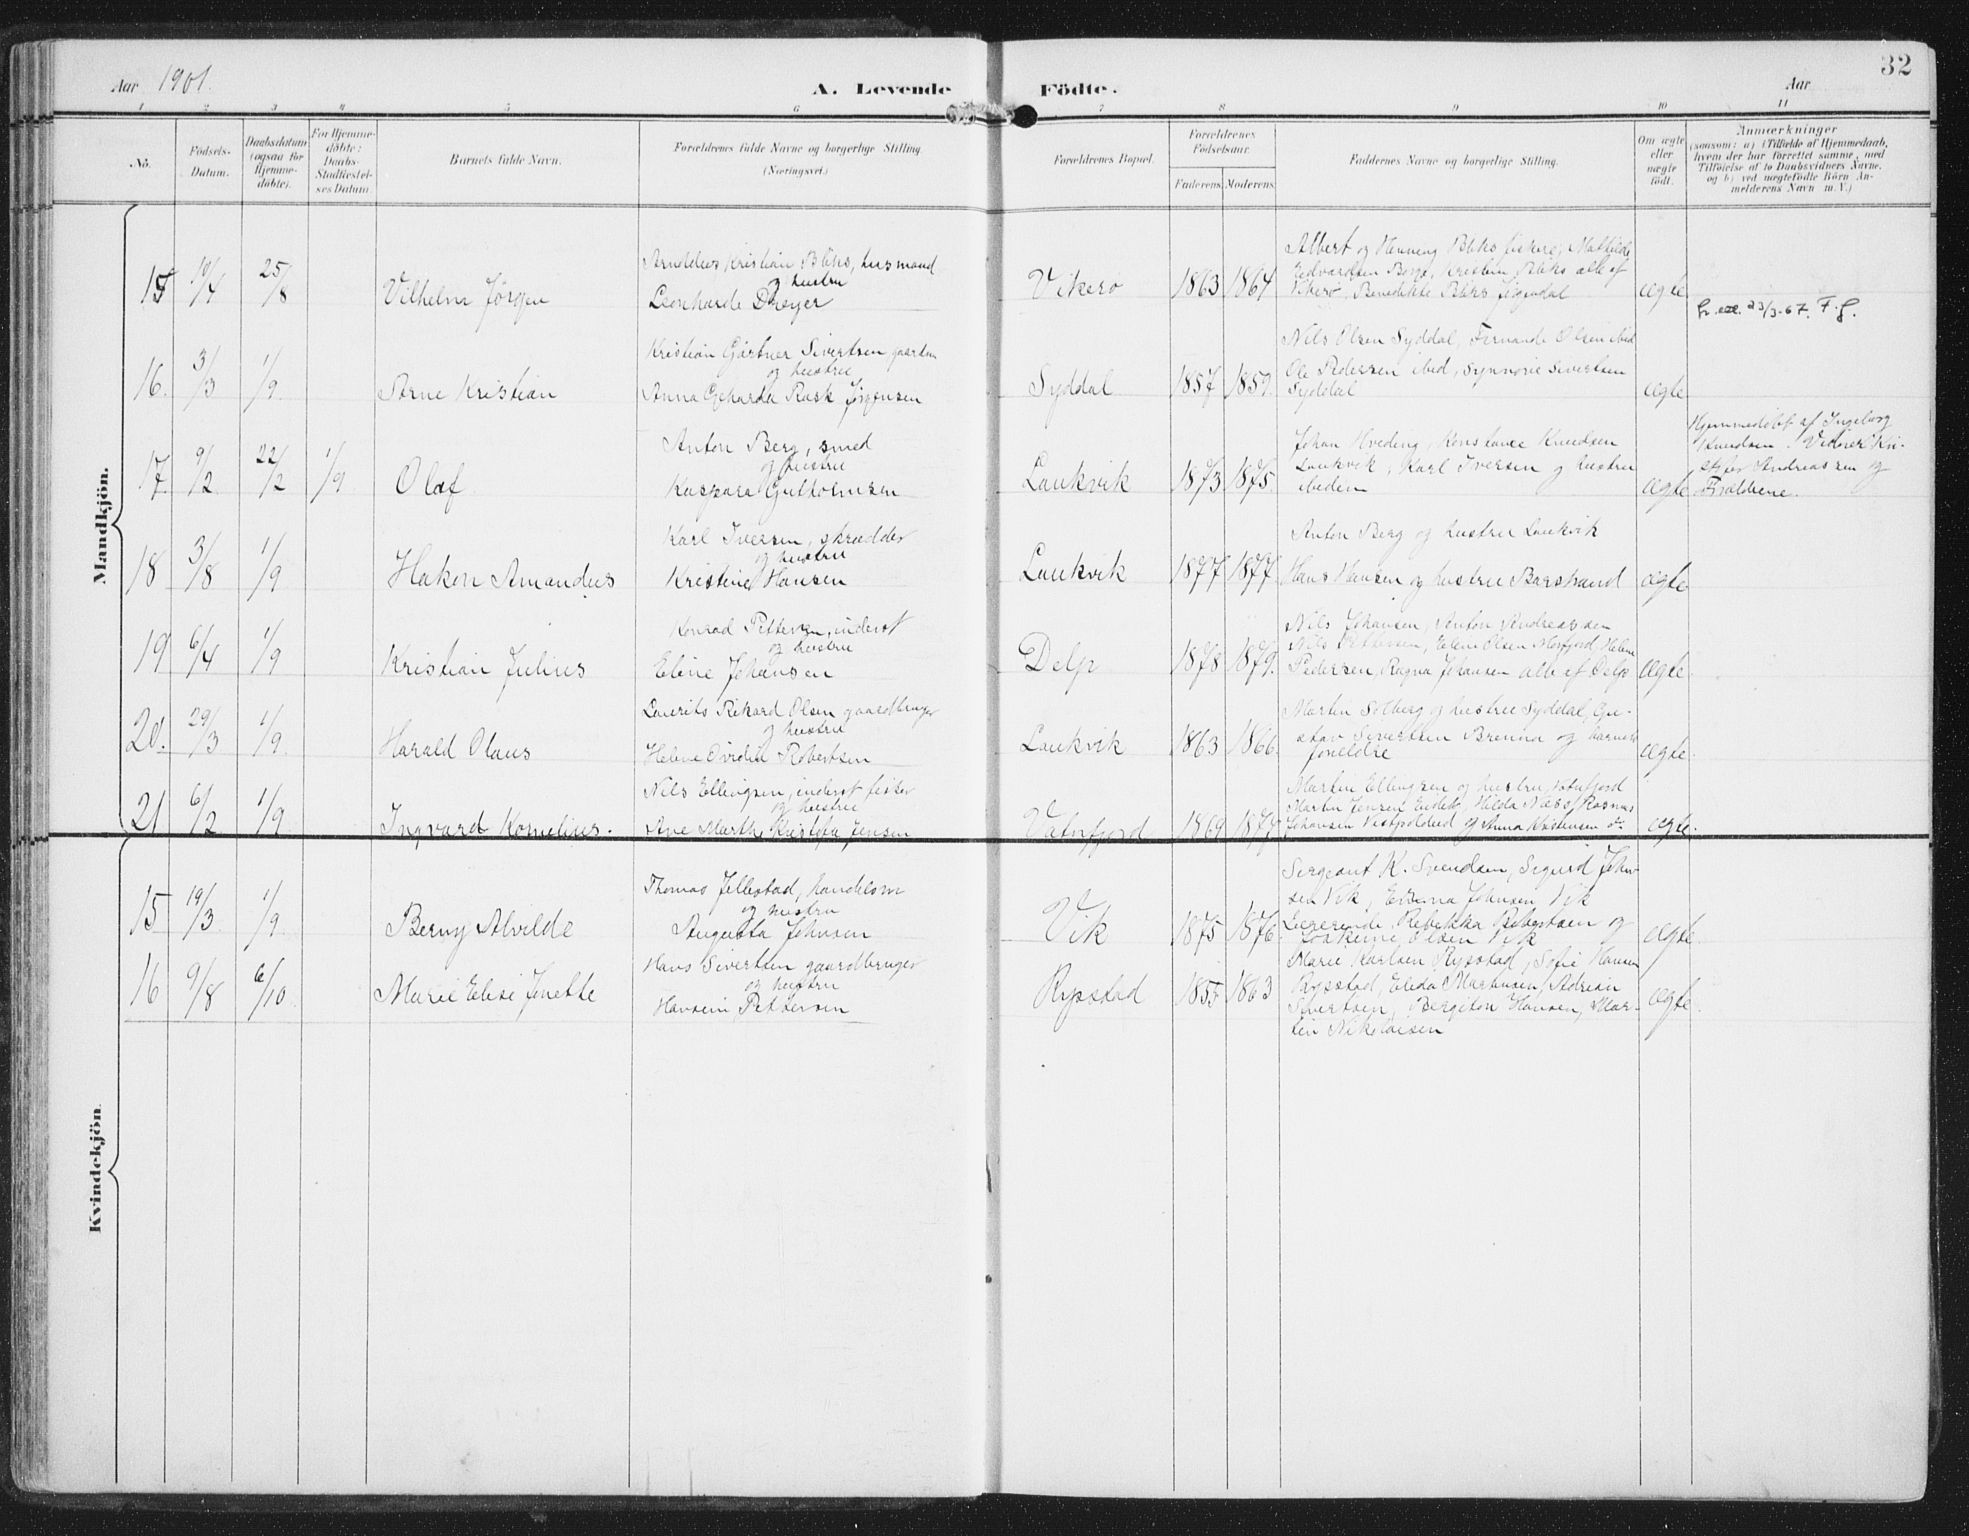 32
Aar 1901.
A. Levende Födte.
Aar
1 2 3 4 5 6 7 8 9 10 11
No.
Födsels-
Datum.
Daabsdatum
(ogsaa for
Hjemme-
döbte).
For Hjemme-
döbte:
Daabs-
Stadfæstel-
ses Datum.
Barnets fulde Navn.
Forældrenes fulde Navne og borgerlige Stilling.
(Næringsvei.)
Forældrenes Bopæl.
Forældrenes
Födselsaar.
Faderens. Moderens.
Faddernes Navne og borgerlige Stilling.
Om ægte
eller
uægte
födt.
Anmærkninger
(saasom: a) i Tilfælde af Hjemmedaab,
hvem der har forrettet samme, med
Tilföielse af to Daabsvidners Navne,
og b) ved uægtefödte Börn An-
melderens Navn m. V.)
Mandkjön.
15 10/4 25/8 Vilhelm Jörgen
Arnoldus Kristian Bliks, husmand
og hustru
Leonharde Dreyer
Vikerø 1863 1864
Albert og Henning Bliks fiskere, Mathilde
Edvardsen Borge, Kristine Bliks alle af
Vikerø, Benedikte Bliks Jörgendal
ægte
23/3-67. F. G.
16. 3/3 1/9. Arne Kristian
Kristian Gärtner Sivertsen gaardm
og hustru
Anna Geharda Rask Jörgensen
Syddal 1857 1859.
Nils Olsen Syddal, Fernande Olsen ibid
Ole Pedersen ibid, Synnøve Sivertsen
Syddal
ægte
17. 9/2. 22/2 1/9 Olaf
Anton Berg, smed
og hustru
Kaspara Guttormsen
Laukvik 1873 1875.
Johan Hveding, Konstance Knudsen
Laukvik, Karl Iversen og hustru
ibidem
ægte
Hjemmedöbt af Ingeborg
Knudsen. Vidner Kri-
stofer Andreassen og
Forældrene.
18 3/8 1/9 Hakon Amandus
Karl Iversen, skrædder
og hustru
Kristine Hansen
Laukvik 1877 1877.
Anton Berg og hustru Laukvik
Hans Hansen og hustru Barstrand
ægte
19 6/4 1/9 Kristian Julius
Konrad Pettersen, inderst
og hustru
Eline Johansen
Delp 1878 1879.
Nils Johansen, Anton Andreassen
Nils Pettersen, Elene Olsen Morfjord, Helene
Pedersen, Ragna Johansen alle af Delp
ægte
20. 29/3 1/9. Harald Olaus
Laurits Rikard Olsen gaardbruger
og hustru
Helene Ovidia Robertsen
Laukvik 1863 1866.
Martin Solberg og hustru Syddal, Gu-
stav Sivertsen Brenna og barnets
foreldre
ægte.
21 6/2 1/9. Ingvard Kornelius.
Nils Ellingsen, inderst fisker
og hustru
Ane Marthe Kristofa Jensen
Vatnfjord 1869 1877
Martin Ellingsen og hustru Vatnfjord
Martin Jensen Hilda Næss, Rasmus
Johansen og Anna Kristensen do
ægte.
Kvindekjön.
15 19/3 1/9. Berny Alvilde
Thomas Jellestad, handelsm
og hustru
Augusta Johnsen
Vik 1875 1876.
Sergeant K. Svendsen, Sigurd John-
sen Vik, Johnsen Vik
Lærerinde, Rebekka Robertsen og
Joakime Olsen Vik
ægte.
16 9/8 6/10 Marie Elise Jenette
Hans Sivertsen gaardbruger
og hustru
Hansine Pettersen
Rypstad 1855 1863
Marie Karlsen Rypstad, Sofie Hansen
Rypstad, Elida Martinsen, Adrian
Sivertsen, Bergiton Hansen, Mar-
tin Nikolaisen
ægte.